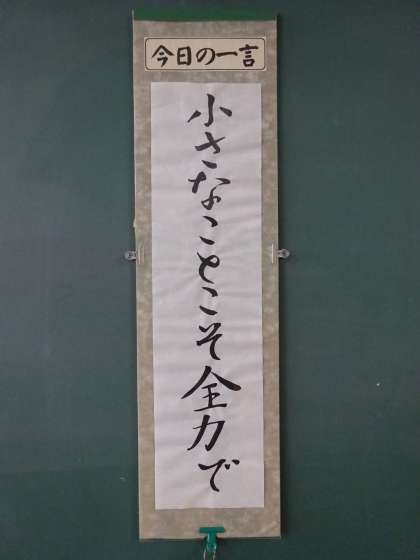 今日の一言
小さなことこそ全力で